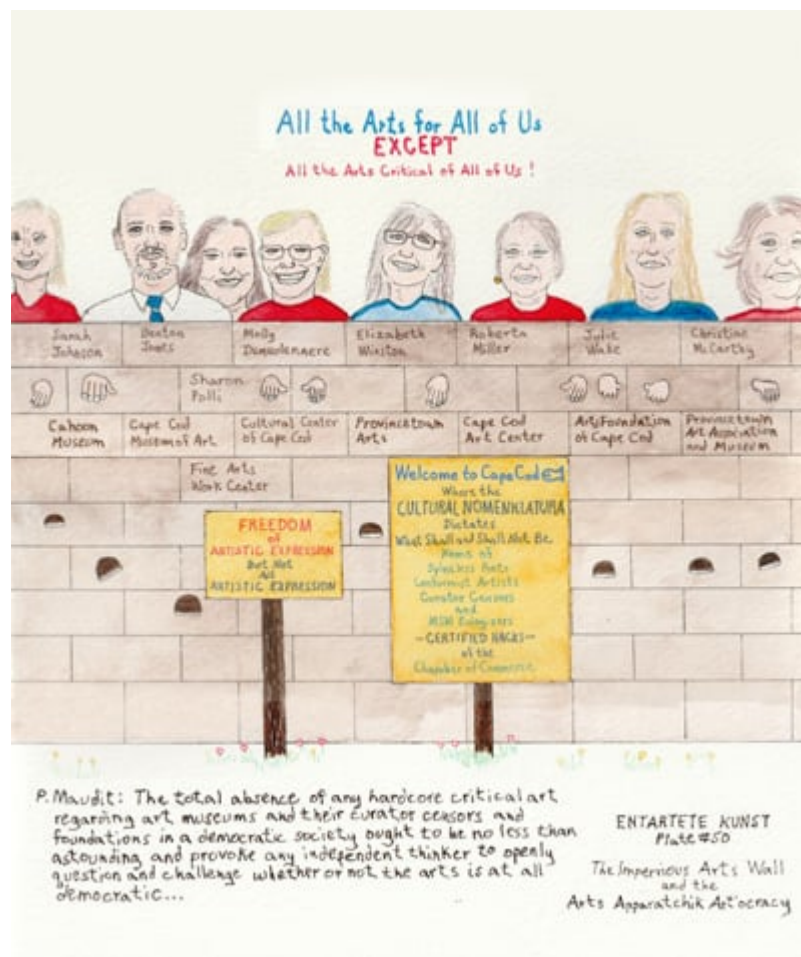 All the Arts for All of Us
EXCEPT
All the Arts Critical of All of Us !
Sarah Johnson
Benton Jones
Molly Demeulenaere
Elizabeth Winston
Roberta Miller
Julie Wake
Christine McCarthy
Sharon Polli
Cahoon Museum
Cape Cod Museum of Art
Cultural Center of Cape Cod
Provincetown Arts
Cape Cod Art Center
Arts Foundation of Cape Cod
Provincetown Art Association and Museum
Fine Arts Work Center
FREEDOM
of
ARTISTIC EXPRESSION
But Not
All
ARTISTIC EXPRESSION
Welcome to Cape Cod
Where the
CULTURAL NOMENKLATURA
Dictates
What Shall and Shall Not Be
Home of
Spineless Poets
Conformist Artists
Curator Censors
and
MSM Eulogizers
-CERTIFIED HACKS-
of the
Chamber of Commerce
P. Maudit: The total absence of any hardcore critical art
regarding art museums and their curator censors and
foundations in a democratic society ought to be no less than
astounding and provoke any independent thinker to openly
question and challenge whether or not the arts is at all
democratic...
ENTARTETE KUNST
Plate #50
The Imperious Arts Wall
and the
Arts Apparatchik Art'ocracy